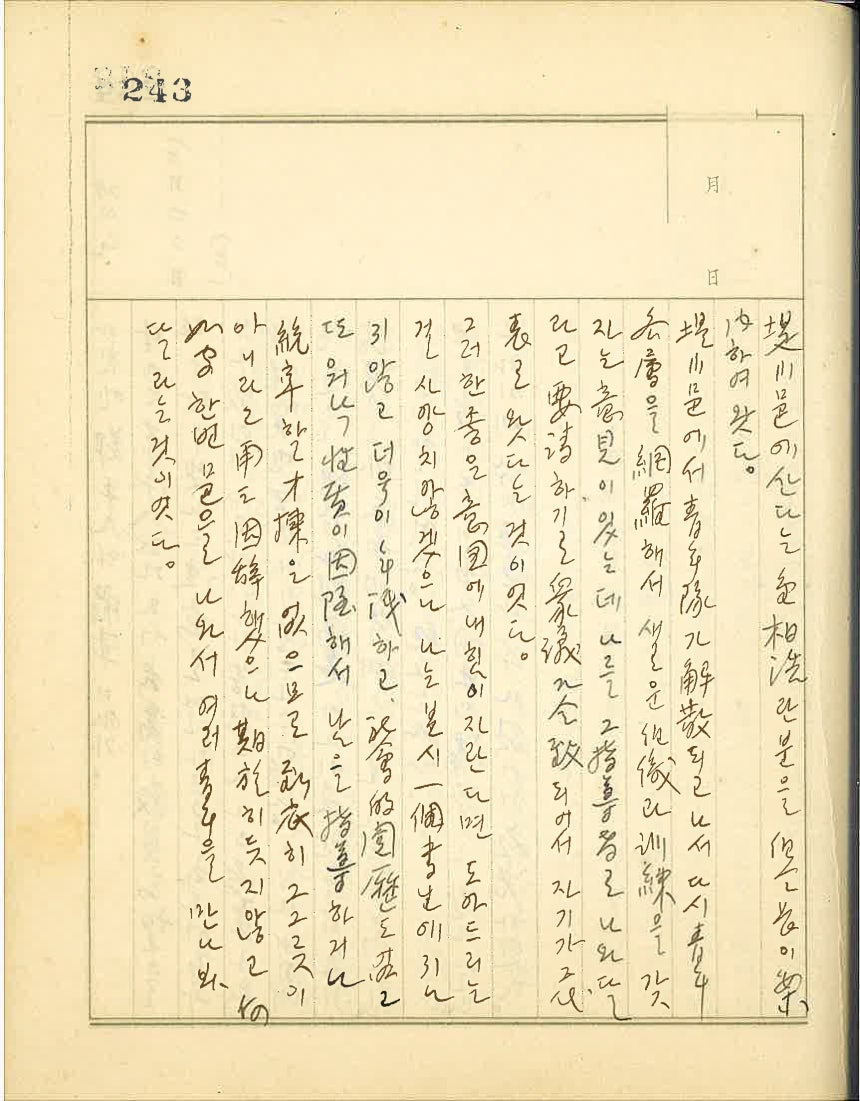 243
月
日
堤川邑에 산다는 金相浩란 분을 里長이 案
內하여 왓다.
堤川邑에서 靑年隊가 解散되고 나서 다시 靑年
各層을 網羅해서 새로운 組織과 訓練을 갖
자는 意見이 있는데 나를 그 指導者로 나와 달
라고 要請하기로 衆議가 全致되어서 자기가 代
表로 왓다는 것이엿다.
그러한 좋은 意圖에 내 힘이 자란다면 도아드리는
걸 사양치 않겠으나 나는 본시 一個 書生에 지나
지 않고 더욱이 年淺하고, 社會的 閱歷도 없고
또 워낙 性質이 固陋해서 남을 指導하거나
統率할 才操은 없으므로 到底히 그 그릇이
아니라는 固辭했으나 期於히 듯지 않고 何
如間 한번 邑으로 나와서 여러 靑年을 만나봐
달라는 것이엿다.